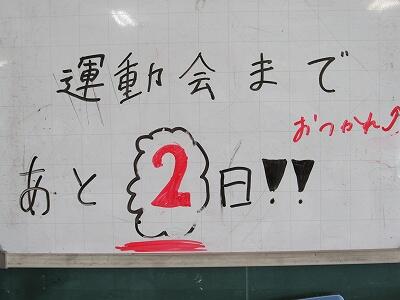 運動会まで
おつかれ♪
あと2日!!